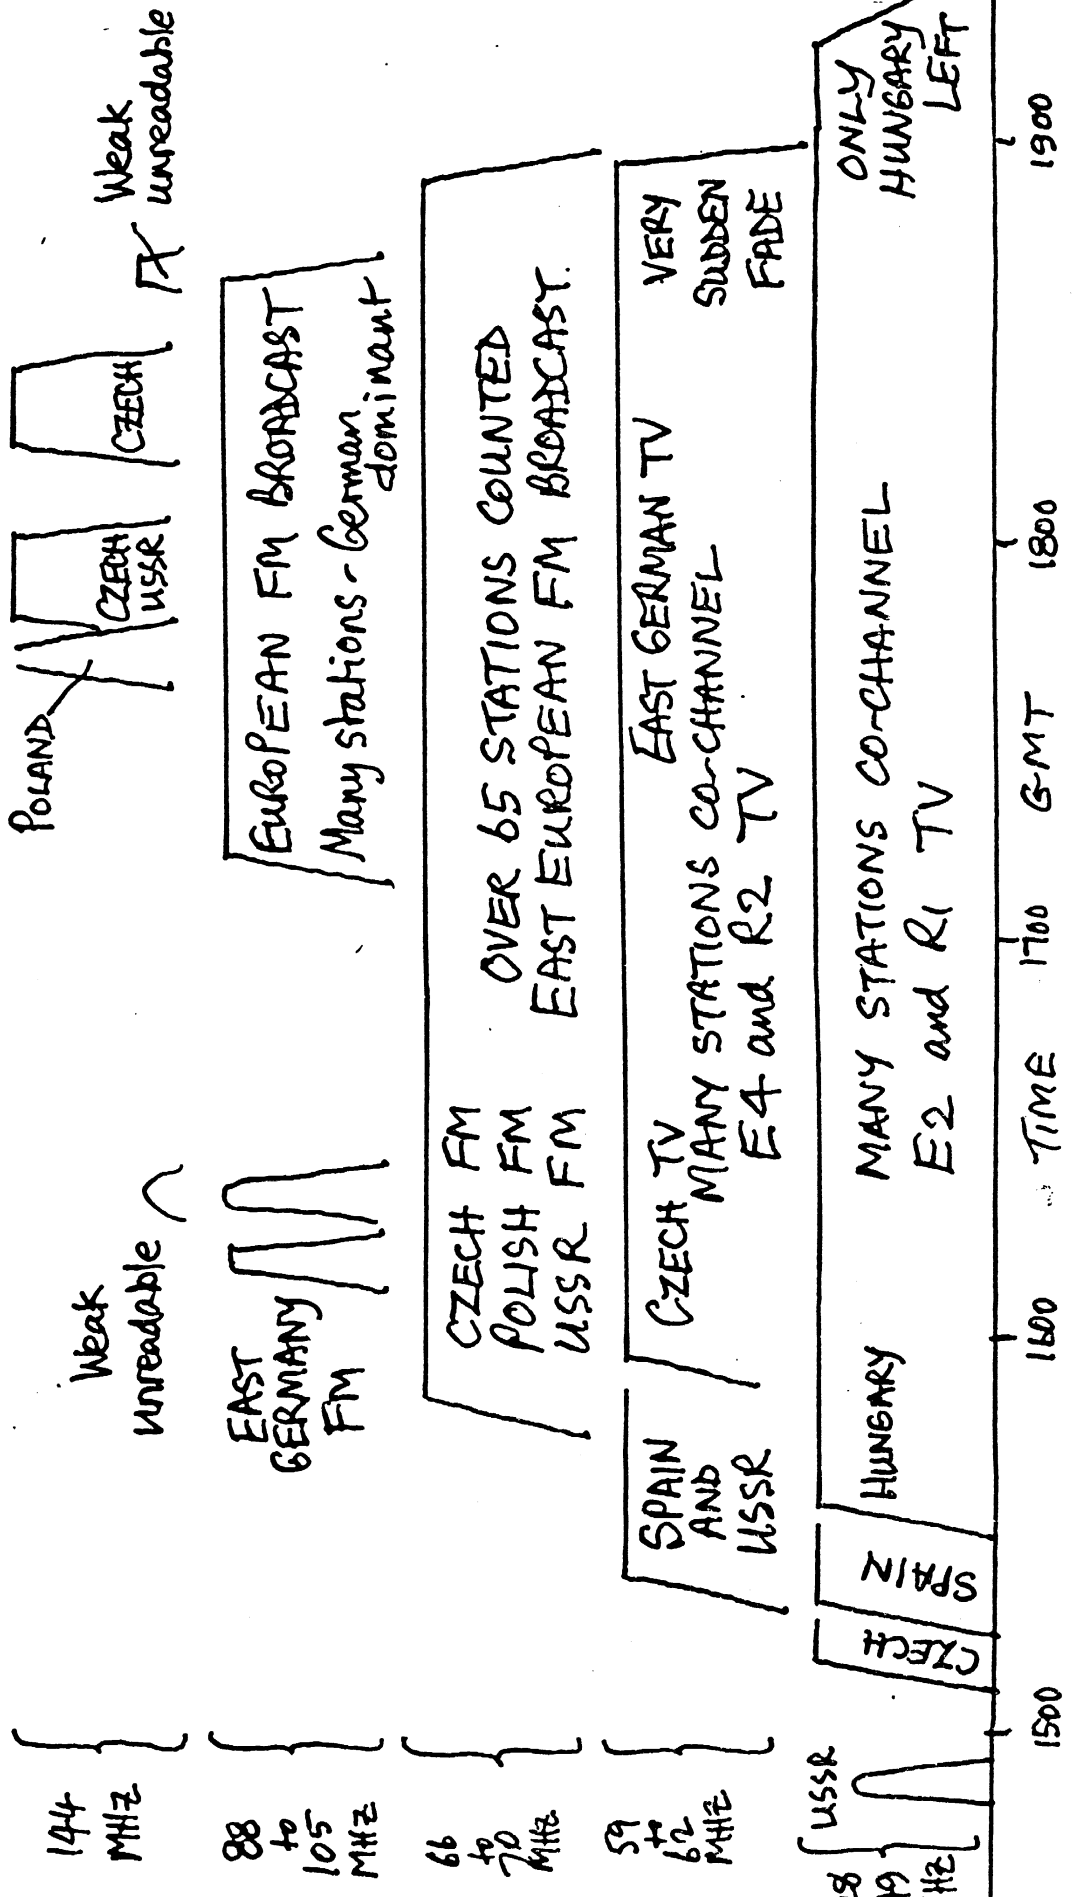 144
MHz
Weak
unreadable
POLAND
CZECH
USSR
CZECH
Weak
unreadable
88
to
105
MHz
EAST
GERMANY
FM
EUROPEAN FM BROADCAST
Many stations - German
dominant
66
to
70
MHz
CZECH FM
POLISH FM
USSR FM
OVER 65 STATIONS COUNTED
EAST EUROPEAN FM BROADCAST.
59
to
62
MHz
SPAIN
AND
USSR
CZECH TV
MANY STATIONS CO-CHANNEL
E4 and R2 TV
EAST GERMAN TV
VERY
SUDDEN
FADE
USSR
CZECH
SPAIN
HUNGARY
MANY STATIONS CO-CHANNEL
E2 and R1 TV
ONLY
HUNGARY
LEFT
1500
1600
1700
1800
1900
TIME GMT